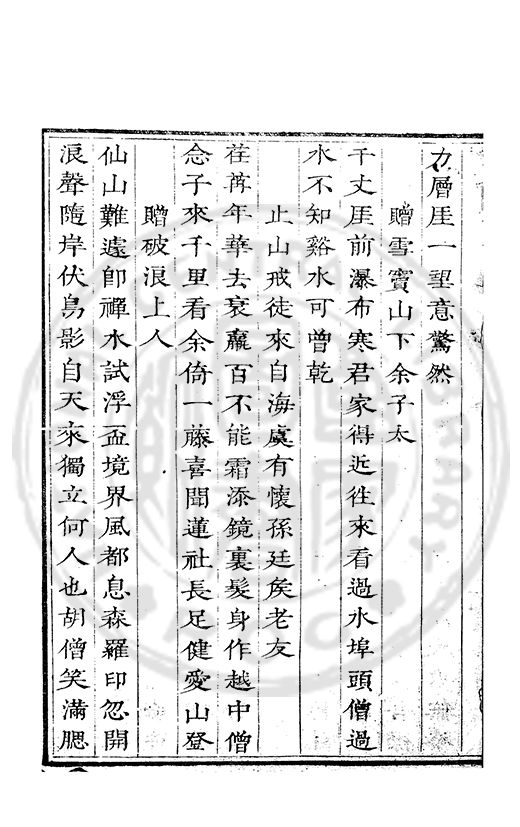 力層厓一望意驚然
贈雪竇山下余子太
千丈厓前瀑布寒君家得近徃來看過水埠頭僧過
水不知谿水可曾乾
止山戒徒來自海虞有懷孫廷矦老友
荏苒年華去衰羸百不能霜添鏡裏髮身作越中僧
念子來千里看余倚一藤喜聞蓮社長足健愛山登
贈破浪上人
仙山難遠卽禪水試浮盃境界風都息森羅印忽開
浪聲隨岸伏鳥影自天來獨立何人也胡僧笑滿腮